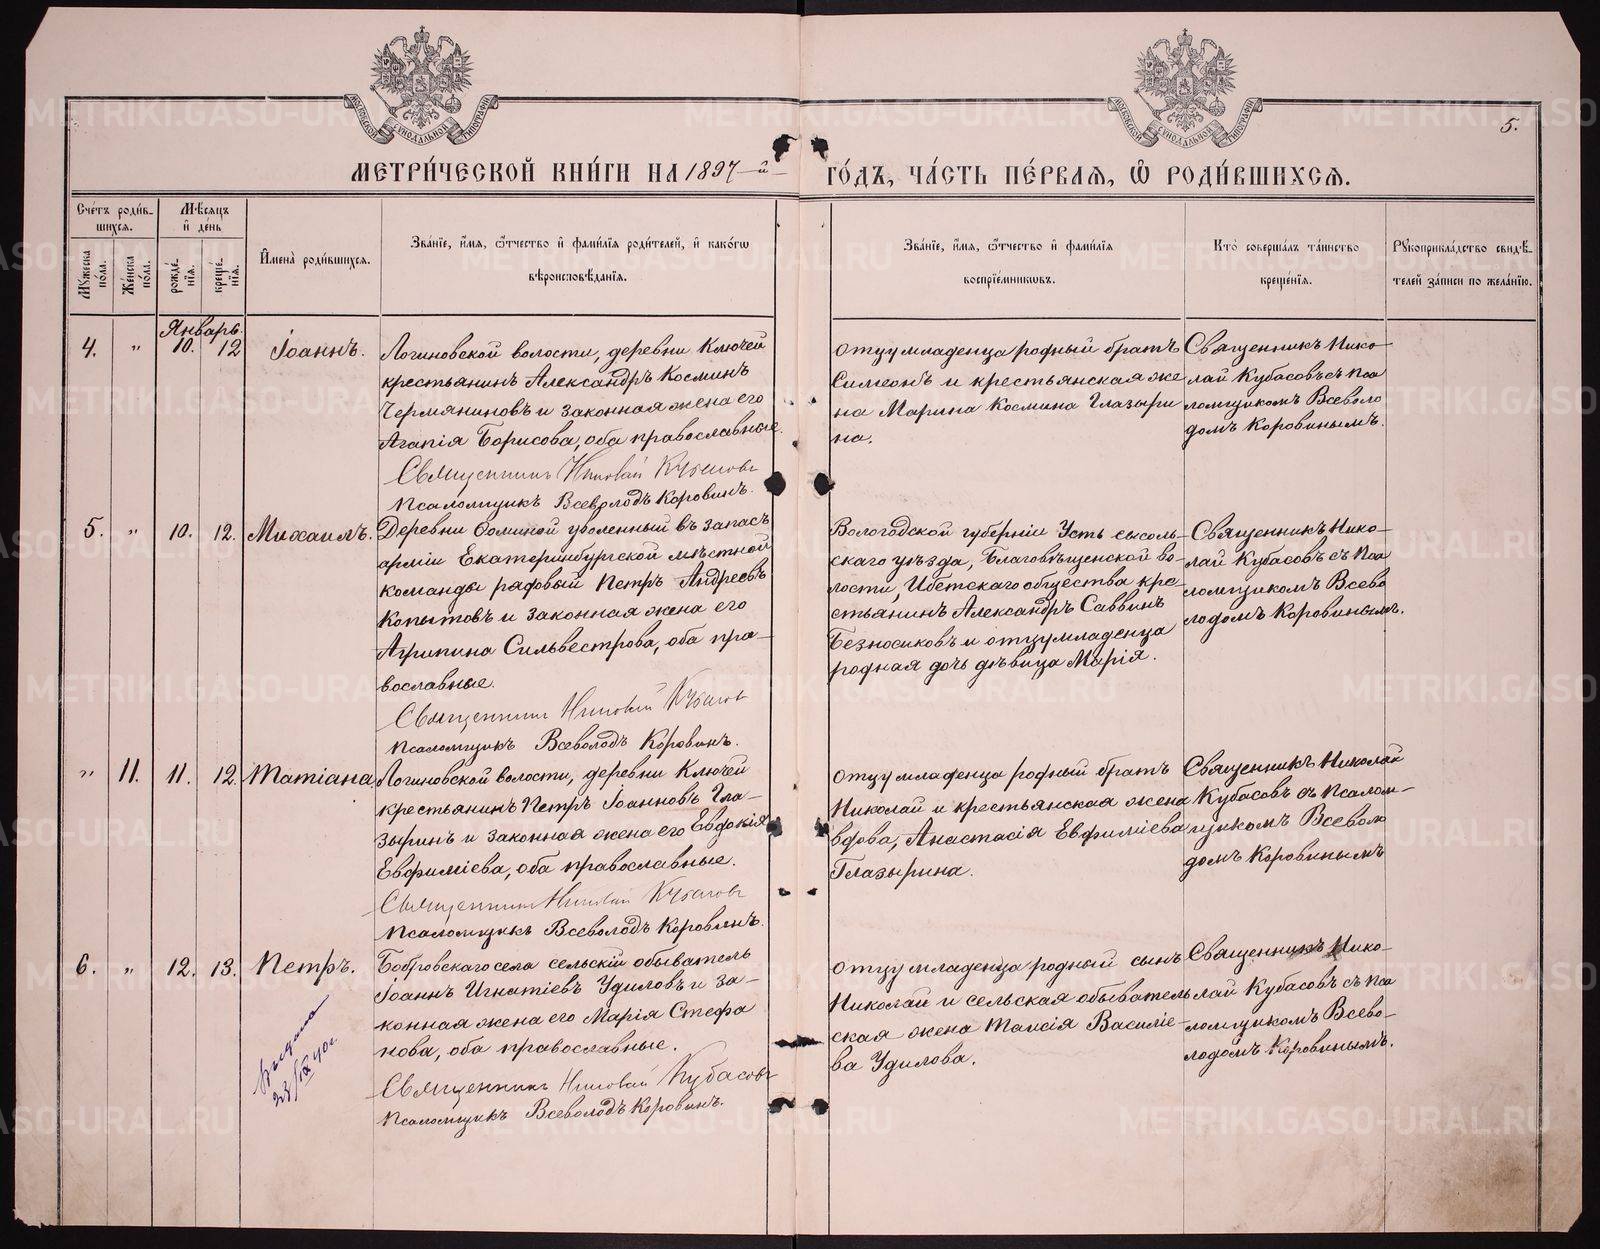 МОСКОВСКОЙ СѴНОДАЛЬНОЙ ТИПОГРАФІИ
МОСКОВСКОЙ СѴНОДАЛЬНОЙ ТИПОГРАФІИ
5.
МЕТРИ́ЧЕСКОЙ КНИ́ГИ НА 1897-й ГО́ДЪ, ЧА́СТЬ ПЕ́РВАѦ, Ѽ РОДИ́ВШИХСѦ.
Сче́тъ роди́в-
шихся.
Мѣ́сяцъ
и҆ де́нь
Му́жеска по́ла.
Же́нска по́ла.
рожде́-нїѧ.
креще́-нїѧ.
И҆мена̀ роди́вшихсѧ.
Зва́нїе, и҆́мѧ, ѻ҆́тчество и҆ фами́лїѧ роди́телей, и҆ како́гѡ
вѣроисповѣ́данїѧ.
Зва́нїе, и҆́мѧ, ѻ҆́тчество и҆ фами́лїѧ
воспрїе́мникѡвъ.
Кто̀ соверша́лъ та́инство
креще́нїѧ.
Рꙋкоприкла́дство свидѣ́-
телей за́писи по жела́нїю.
Январь.
4. " 10. 12 Іоаннъ.
Логиновской волости, деревни Ключей
крестьянинъ Александръ Косминъ
Чермяниновъ и законная жена его
Агапія Борисова, оба православные.
Священникъ Николай Кубасовъ
Псаломщикъ Всеволодъ Коровинъ.
отцу младенца родный братъ
Симеонъ и крестьянская же
на Марина Космина Глазыри
на.
Священникъ Нико-
лай Кубасовъ съ пса
ломщикомъ Всеволо
домъ Коровинымъ.
5. " 10. 12. Михаилъ.
Деревни Фоминой уволенный въ запасъ
арміи Екатеринбургской мѣстной
команды рядовый Петръ Андреевъ
Копытовъ и законная жена его
Агрипина Сильвестрова, оба пра-
вославные.
Священникъ Николай Кубасовъ
Псаломщикъ Всеволодъ Коровинъ.
Вологодской губерніи Усть сысоль-
скаго уѣзда, Благовѣщенской во-
лости, Ибетскаго общества кре-
стьянинъ Александръ Саввинъ
Безносиковъ и отцу младенца
родная дочь дѣвица Марія.
Священникъ Нико-
лай Кубасовъ съ пса
ломщикомъ Всево
лодомъ Коровинымъ.
" 11. 11. 12. Татіана
Логиновской волости, деревни Ключей
крестьянинъ Петръ Іоанновъ Гла-
зыринъ и законная жена его Евдокія
Евфиміева, оба православные.
Священникъ Николай Кубасовъ
Псаломщикъ Всеволодъ Коровинъ.
отцу младенца родный братъ
Николай и крестьянская жена
вдова, Анастасія Евфиміева
Глазырина.
Священникъ Николай
Кубасовъ съ псалом-
щикомъ Всеволо
домъ Коровинымъ
6. " 12. 13. Петръ.
Бобровскаго села сельскій обыватель
Іоаннъ Игнатіевъ Удиловъ и за-
конная жена его Марія Стефа
нова, оба православные.
Священникъ Николай Кубасовъ
Псаломщикъ Всеволодъ Коровинъ.
отцу младенца родный сынъ
Николай и сельская обыватель
ская жена Таисія Василіе-
ва Удилова.
Священникъ Нико-
лай Кубасовъ съ пса
ломщикомъ Всево-
лодомъ Коровинымъ.
23/IX 40г.
METRIKI.GASO-URAL.RU